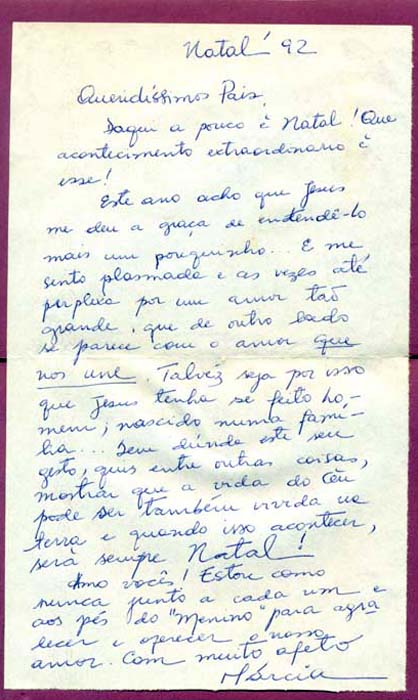 Natal 92
Queridíssimos Pais,
Daqui a pouco é Natal! Que
acontecimento extraordinário é
esse!
Este ano acho que Jesus
me deu a graça de entendê-lo
mais um pouquinho... E me
sinto plasmada e as vezes até
perplexa por um amor tão
grande, que de outro lado
se parece com o amor que
nos une. Talvez seja por isso
que Jesus tenha se feito ho-
mem, nascido numa famí-
lia... Sem dúvida este seu
gesto, quis entre outras coisas,
mostrar que a vida do Céu
pode ser também vivida na
terra e quando isso acontecer,
será sempre Natal!
Amo vocês! Estou como
nunca junto a cada um e
aos pés do "Menino" para agra-
decer e oferecer o nosso
amor. Com muito afeto
Márcia